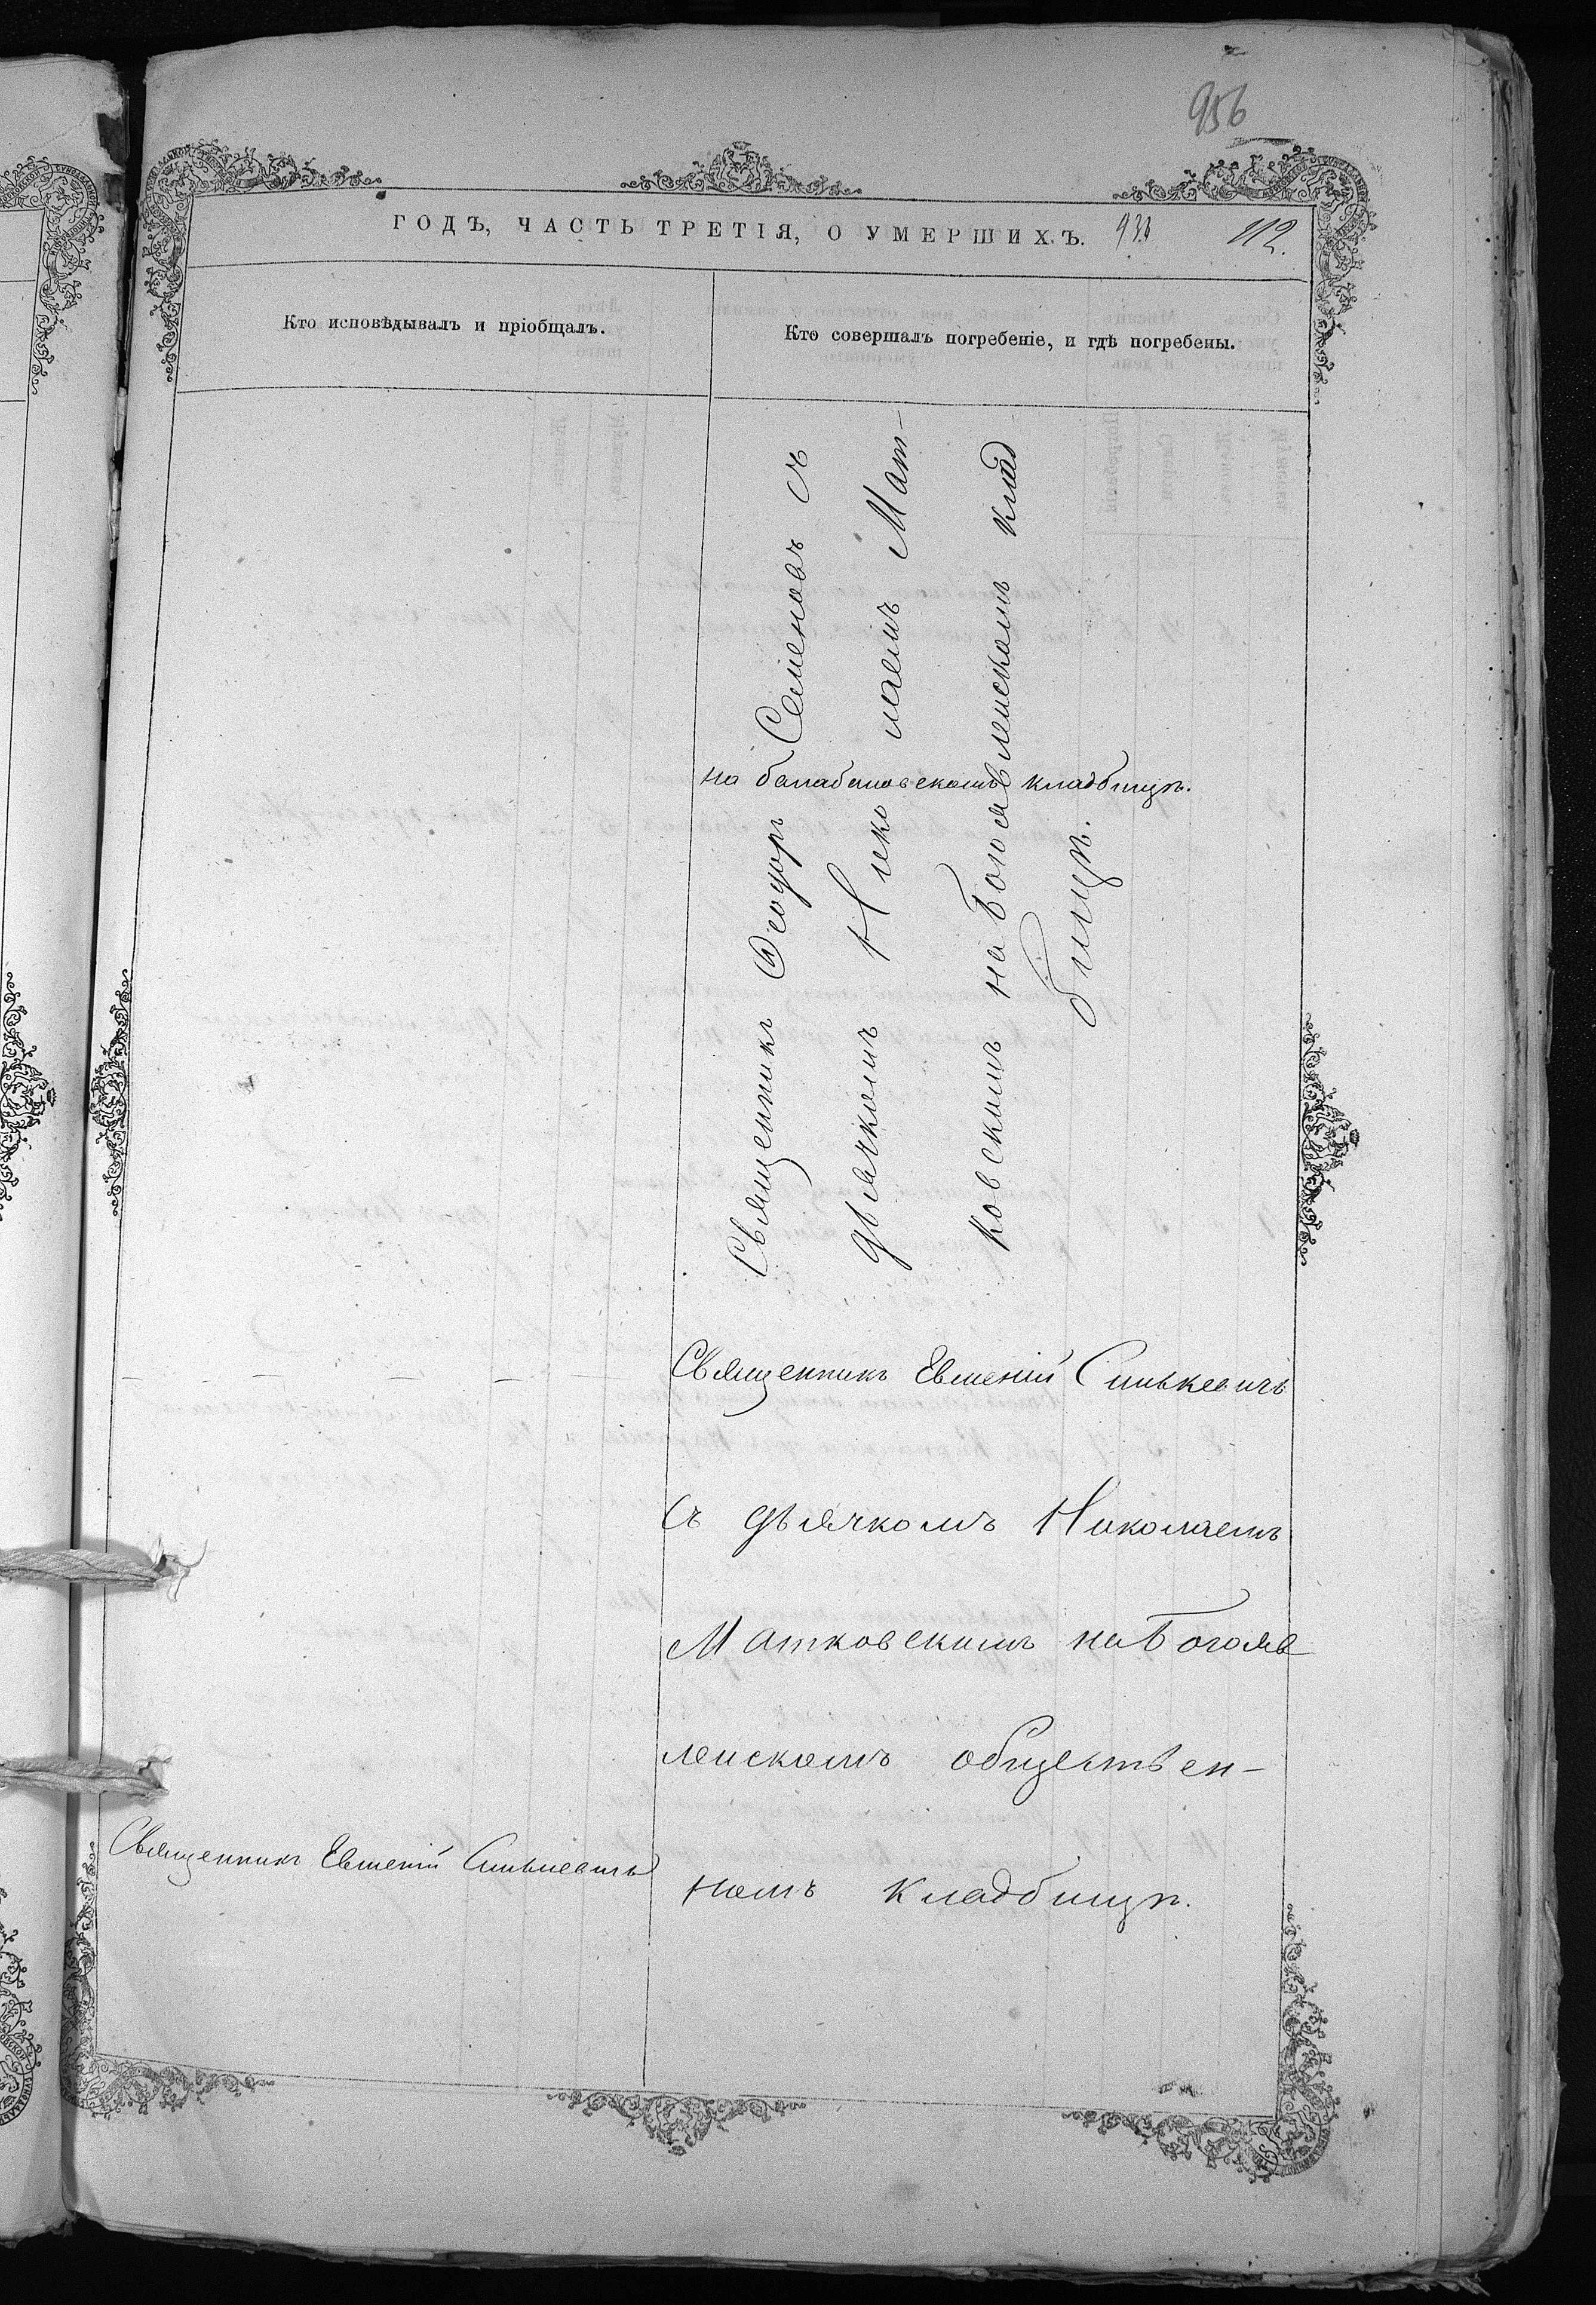 956
ГОДЪ, ЧАСТЬ ТРЕТІЯ, О УМЕРШИХЪ. 112.
Кто исповѣдывалъ и пріобщалъ.
Кто совершалъ погребеніе, и гдѣ погребены.
Священникъ Ѳеодоръ Семеновъ съ
дьячкомъ Николаемъ Мат-
ковскимъ на Богоявленскомъ клад
бищѣ.
на балабановскомъ кладбищѣ.
Священникъ Евменій Синькевичъ
съ дьячкомъ Николаемъ
Матковскимъ на Богояв
ленскомъ обществен-
номъ кладбищѣ.
Священникъ Евменій Синькевичъ